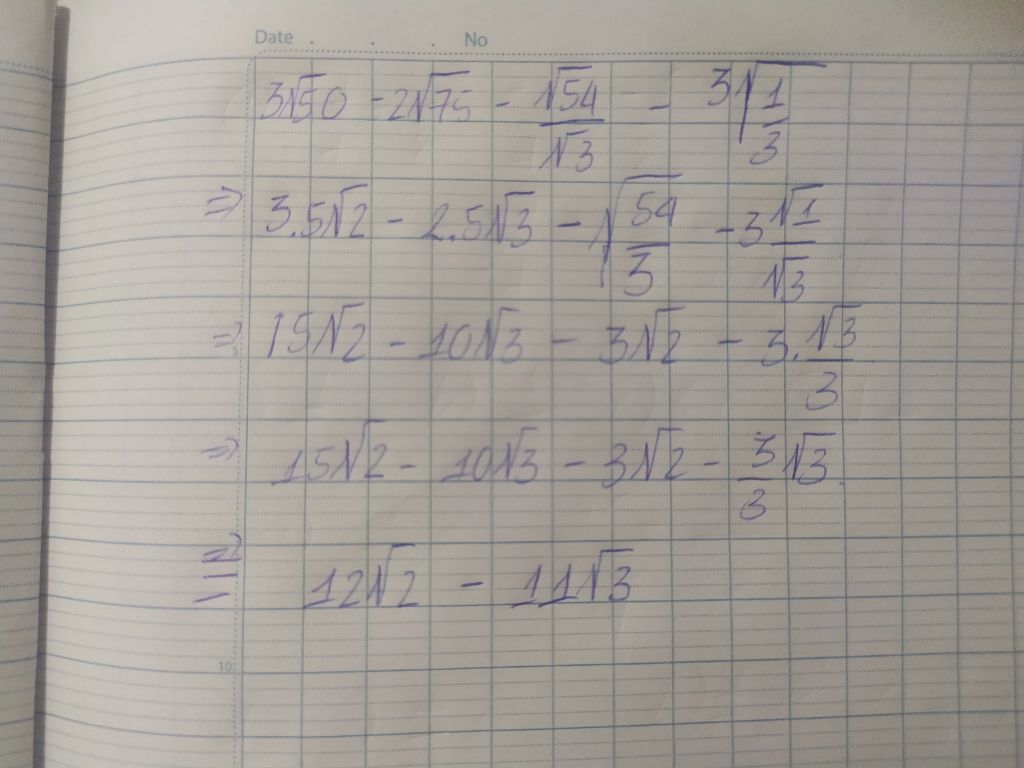 Date . . . No
3√50 - 2√75 - √54/√3 - 3√(1/3)
=> 3.5√2 - 2.5√3 - √(54/3) - 3 √1/√3
=> 15√2 - 10√3 - 3√2 - 3.√3/3
=> 15√2 - 10√3 - 3√2 - 3/3 √3
=> 12√2 - 11√3
10